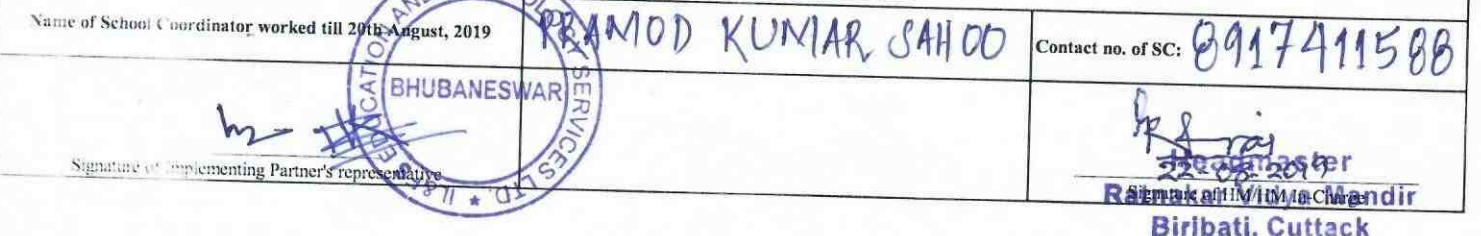 Name of School Coordinator worked till 20th August, 2019
PRAMOD KUMAR SAHOO
Contact no. of SC: 8917411588
IL&FS EDUCATION AND SERVICES LTD.
BHUBANESWAR
Signature of Implementing Partner's representative
22-08-2019
Headmaster
Signature of HM/HM In-Charge
Ratnakar Vidya Mandir
Biribati, Cuttack